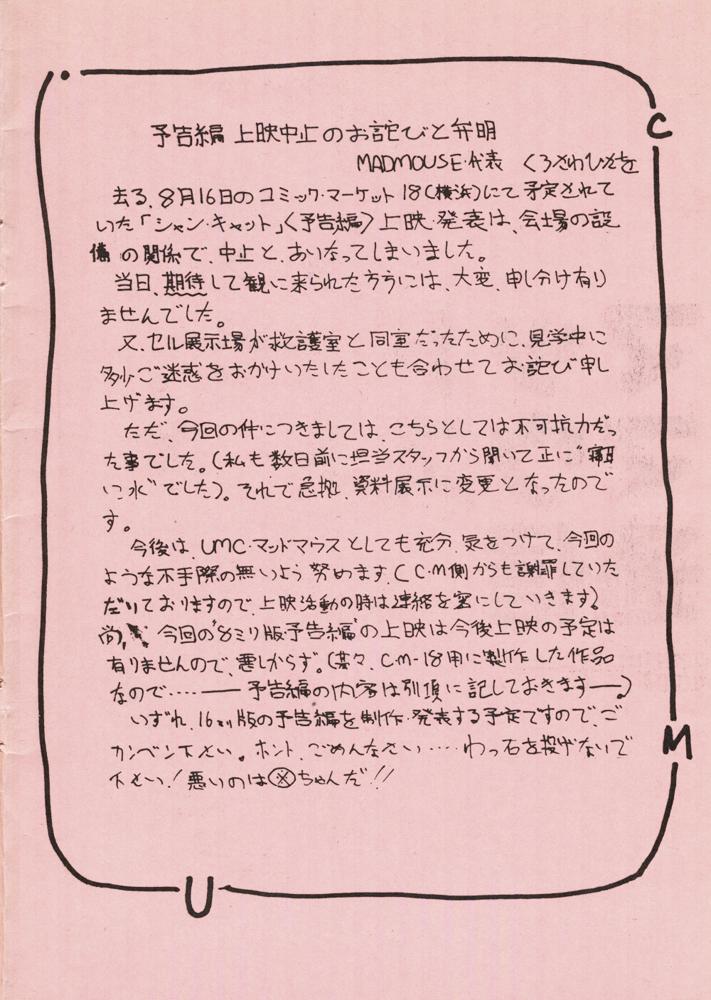 予告編 上映中止のお詫びと弁明
MADMOUSE・代表 くろさわひさを
去る、8月16日のコミック・マーケット18(横浜)にて予定されて
いた「シャン・キャット」〈予告編〉上映・発表は、会場の設
備の関係で、中止と、あいなってしまいました。
当日、期待して観に来られた方うには、大変、申し分け有り
ませんでした。
又、セル展示場が救護室と同室だったために、見学中に
多少ご迷惑をおかけいたしたことも合わせてお詫び申し
上げます。
ただ、今回の件につきましては、こちらとしては不可抗力だっ
た事でした。(私も数日前に担当スタッフから聞いて正に“寝耳
に水”でした)。それで急拠、資料展示に変更となったので
す。
今後は、UMC・マッドマウスとしても充分、気をつけて、今回の
ような不手際の無いよう努めます。(C・M側からも謝罪していた
だいておりますので、上映活動の時は連絡を密にしていきます)
尚、今回の“8ミリ版予告編”の上映は今後上映の予定は
有りませんので、悪しからず。(元々、C・M-18用に製作した作品
なので‥‥──予告編の内容は別項に記しておきます──)
いずれ、16ミリ版の予告編を制作・発表する予定ですので、ご
カンベン下さい。ホント、ごめんなさい‥‥わっ石を投げないで
下さい!悪いのは㊛ちゃんだ!!
C
M
U